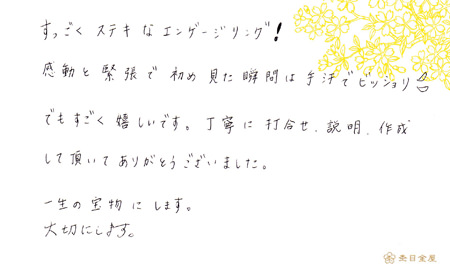 すっごくステキなエンゲージリング!
感動と緊張で初め見た瞬間は手汗でビッショリ
でもすごく嬉しいです。丁寧に打合せ、説明、作成
して頂いてありがとうございました。
一生の宝物にします。
大切にします。
杢目金屋